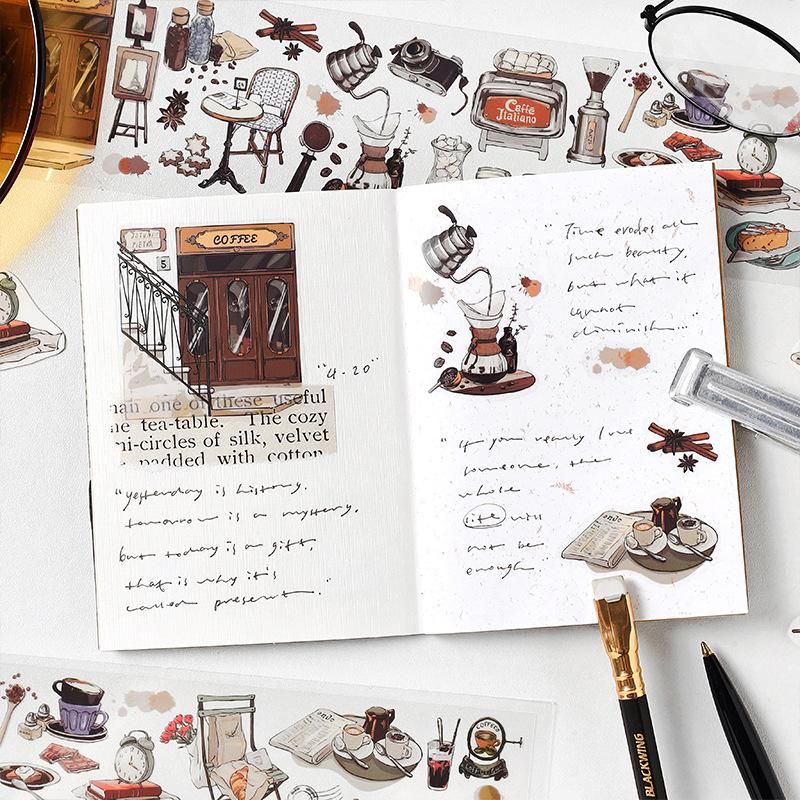 COFFEE
Caffè
Italiano
COFFEE
5
"4-20"
han one of these useful
he tea-table. The cozy
mi-circles of silk, velvet
padded with cotton
"yesterday is history.
tomorrow is a mystery.
but today is a gift,
that is why it's
called present."
"Time erodes all
such beauty,
but what it
cannot
diminish..."
"If you really love
someone, the
whole
life will
not be
enough
BLACKWING
COFFEE